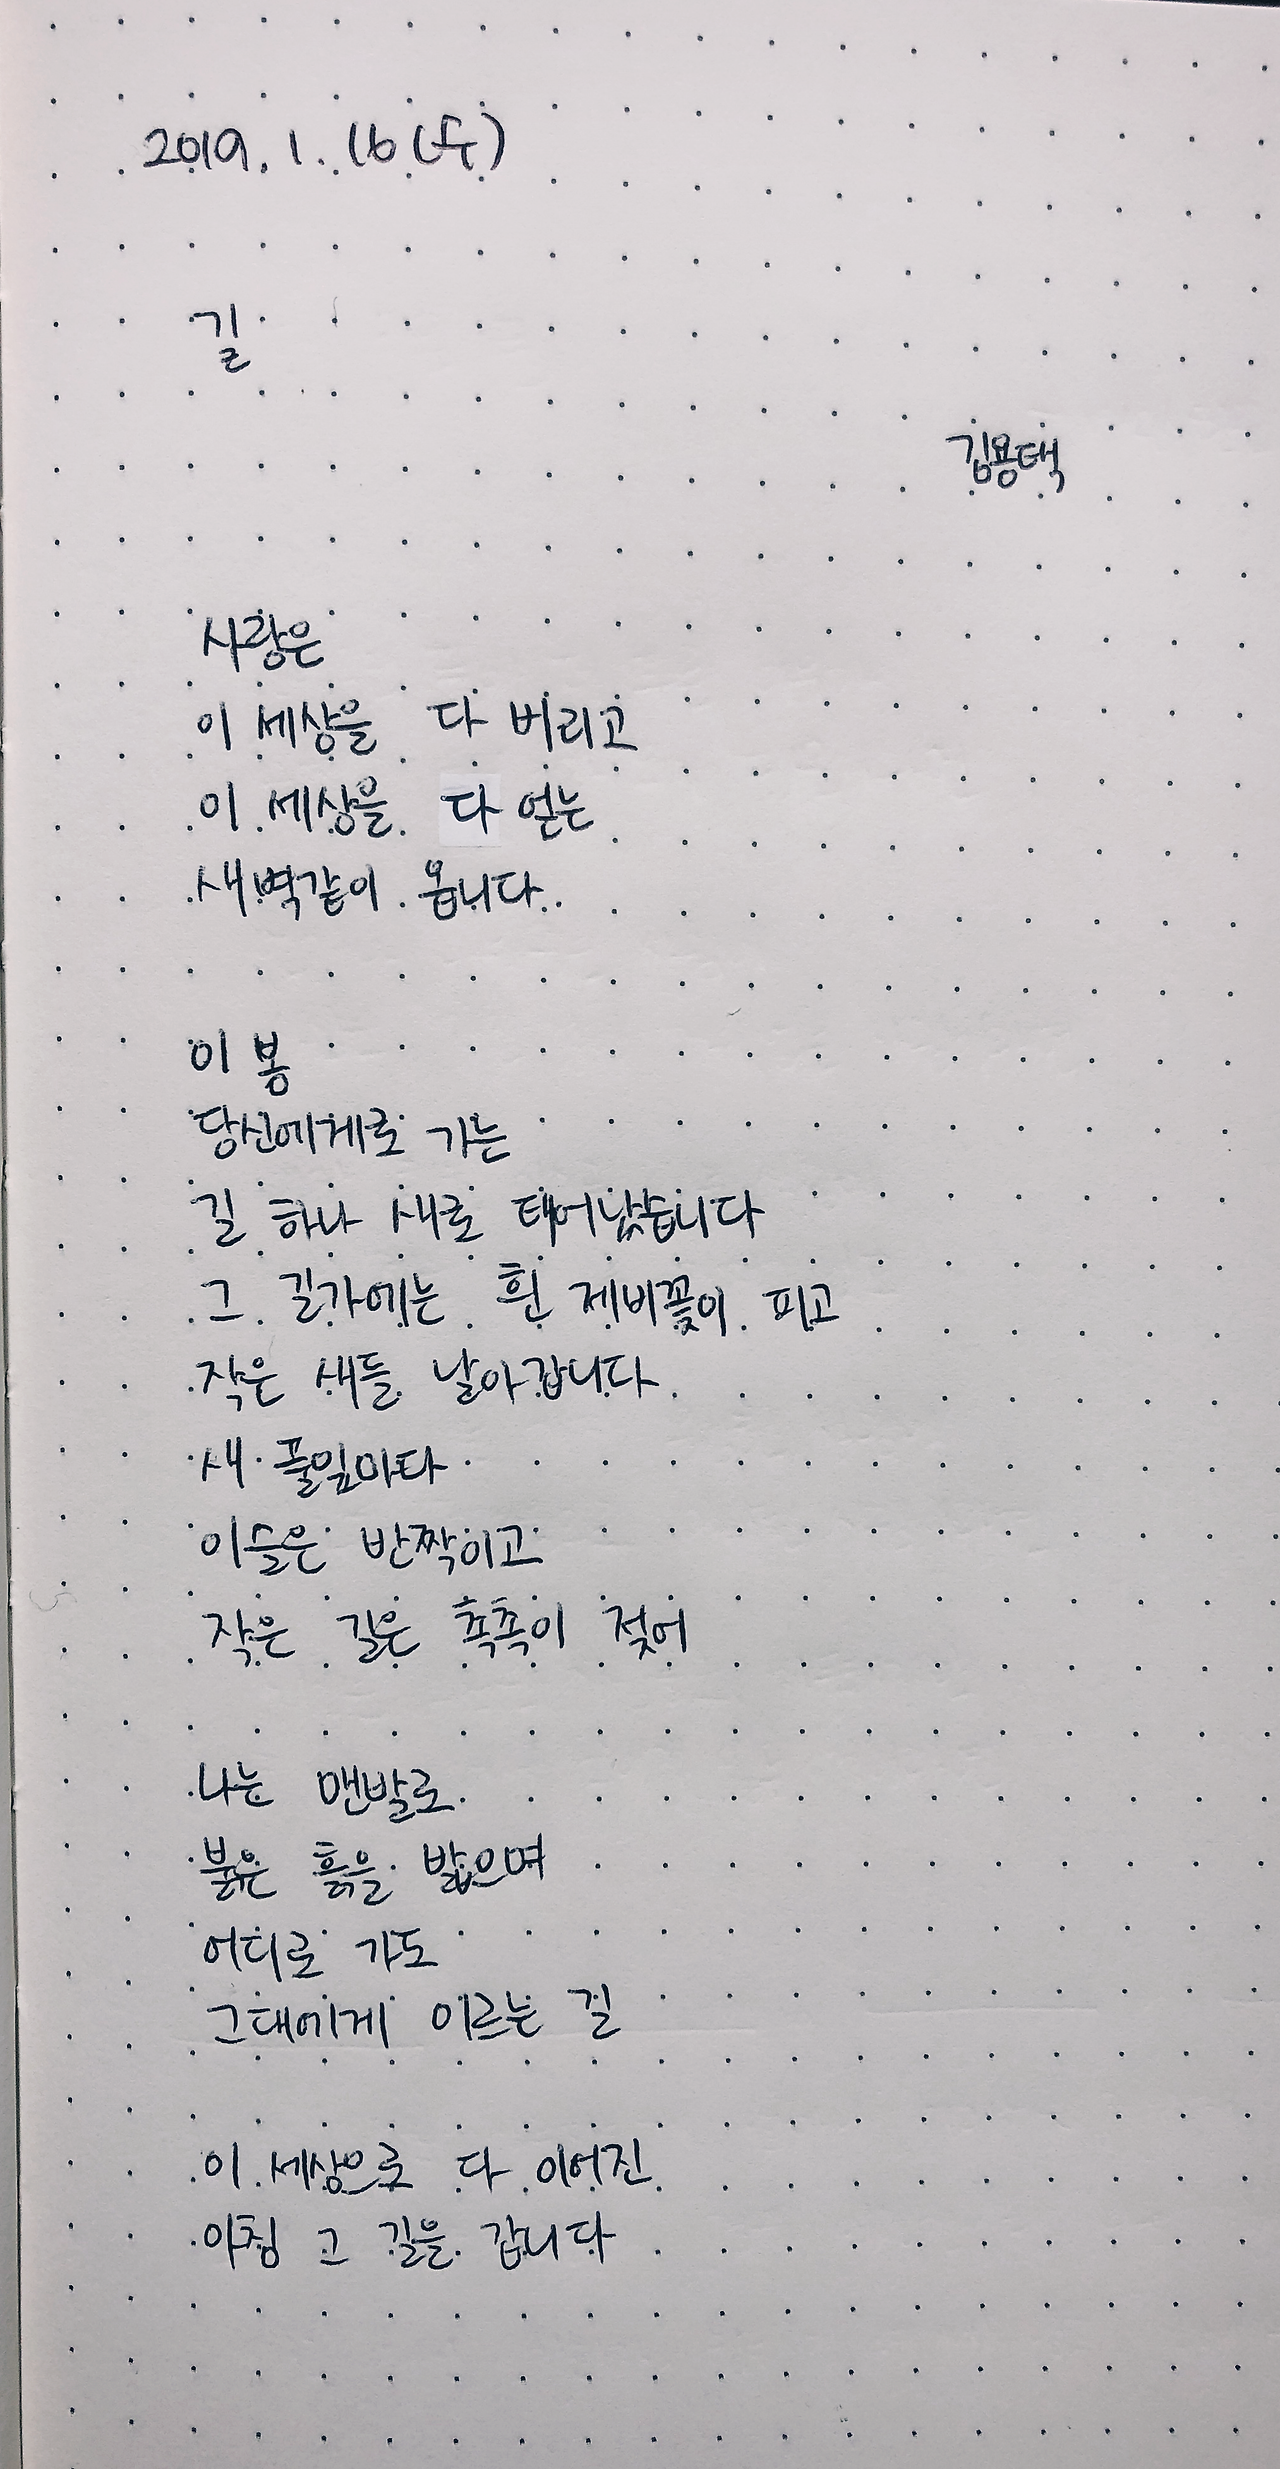 2019. 1. 16 (수)
길
김용택
사랑은
이 세상을 다 버리고
이 세상을 다 얻는
새벽같이 옵니다.
이 봄
당신에게로 가는
길 하나 새로 태어났습니다
그 길가에는 흰 제비꽃이 피고
작은 새들 날아갑니다
새 풀잎마다
이슬은 반짝이고
작은 길은 촉촉이 젖어
나는 맨발로
붉은 흙을 밟으며
어디로 가도
그대에게 이르는 길
이 세상으로 다 이어진
아침 그 길을 갑니다